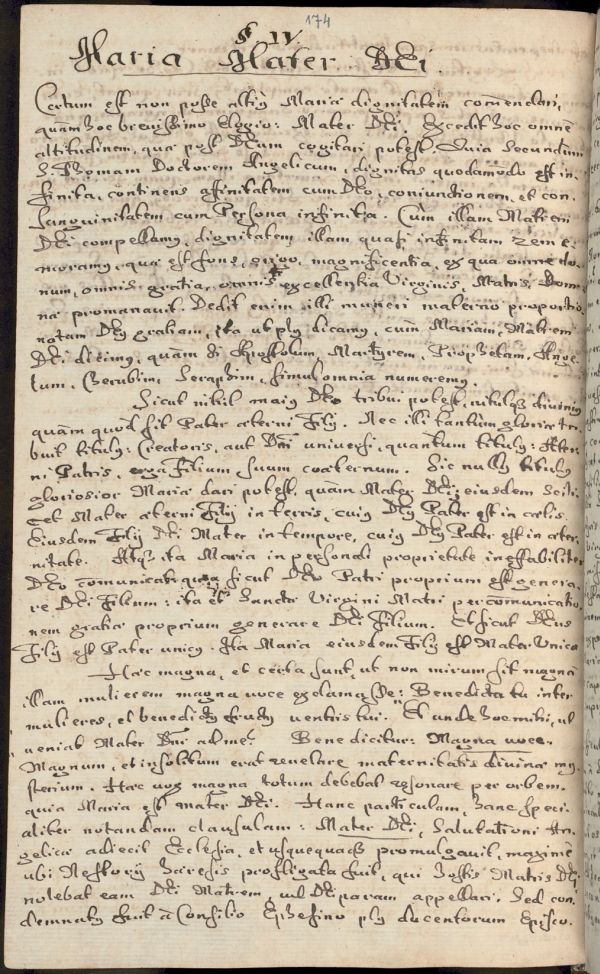 174
§ IV.
Maria Mater Dei.
Certum est non posse altiùs Mariæ dignitatem com̄endari,
quàm hoc brevissimo Elogio: Mater Dei. Excedit hoc omnē
altitudinem, quæ post Deum cogitari potest. Quia secundum
S. Thomam Doctorem Angelicum, dignitas quodamodo est in-
finita, continens affinitatem cum Deo, coniunctionem, et con-
sanguinitatem cum Persona infinita. Cùm illam Matrem
Dei compellamꝰ, dignitatem illam quasi infinitam
quæ est fons, ergo, magnificentia, ex qua omne do-
num, omnis gratia, omnis excellentia Virginis, Matris, Domi-
næ promanavit. Dedit enim illi muneri materno proportio-
natam Deꝰ gratiam, ita ut plꝰ dicamꝰ, cùm Mariam, Matrem
Dei dicimꝰ, quàm si Apostolum, Martyrem, Prophetam, Ange-
lum, Cherubim, Seraphim, simul omnia numeremꝰ.
Sicut nihil maiꝰ Deo tribui potest, nihilq₃ diviniꝰ
quàm quòd sit Pater æterni Filij. Nec illi tantùm gloriæ tri-
buit titulꝰ: Creatoris, aut Dn̄i universi, quantum titulꝰ: Æter-
ni Patris, erga Filium suum coæternum. Sic nullꝰ titulꝰ
gloriosior Mariæ dari potest, quàm Mater Dei; eiusdem
Et Mater æterni Filij in terris, cuiꝰ Deꝰ Pater est in cælis.
Eiusdem Filij Dei Mater in tempore, cuiꝰ Deꝰ Pater est in æter-
nitate. Atq₃ ita Maria in personali proprietate ineffabiliter
Deo communicat: quia sicut Deo Patri proprium est genera-
re Dei Filium: ita et Sanctæ Virgini Matri per com̄unicatio-
nem gratiæ proprium generare Dei Filium. Et sicut Deus
Filij est Pater unicꝰ: Ita Maria eiusdem Filij est Mater Unica
Hæc magna, et certa sunt, ut non mirum sit magna
illam mulierem magna voce exclamasse: Benedicta tu inter
mulieres, et benedictꝰ fructꝰ ventris tui. Et unde hoc mihi, ut
veniat Mater Dn̄i ad me? Bene dicitur: Magna voce.
Magnum, et insolitum erat revelare maternitatis divinæ my-
sterium. Hæc vox magna totum debebat resonare per orbem.
quia Maria est mater Dei. Hanc particulam, hanc speci-
aliter notandam clausulam: Mater Dei, Salutationi An-
gelicæ adiecit Ecclesia, et usquequaq₃ promulgavit, maximè
ubi Nestorij hæresis profligata fuit, qui hostis Matris Dei
nolebat eam Dei Matrem, vel Deiparam appellari. Sed con-
demnatꝰ fuit à Consilio Ephesino plꝰ ducentorum Episco-